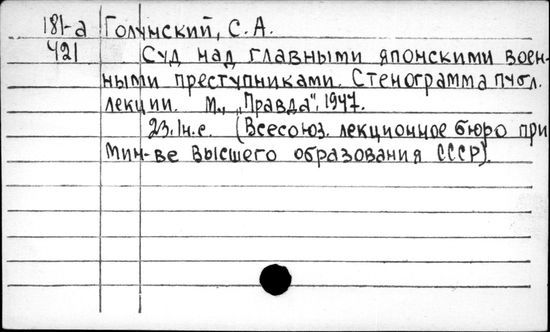 181-а Голунский, С. А.
421 Суд над главными японскими воен-
ными преступниками. Стенограмма публ.
лекции. М., „Правда", 1947.
23.Iн.е. (Всесоюз. лекционное бюро при
Мин-ве высшего образования СССР).